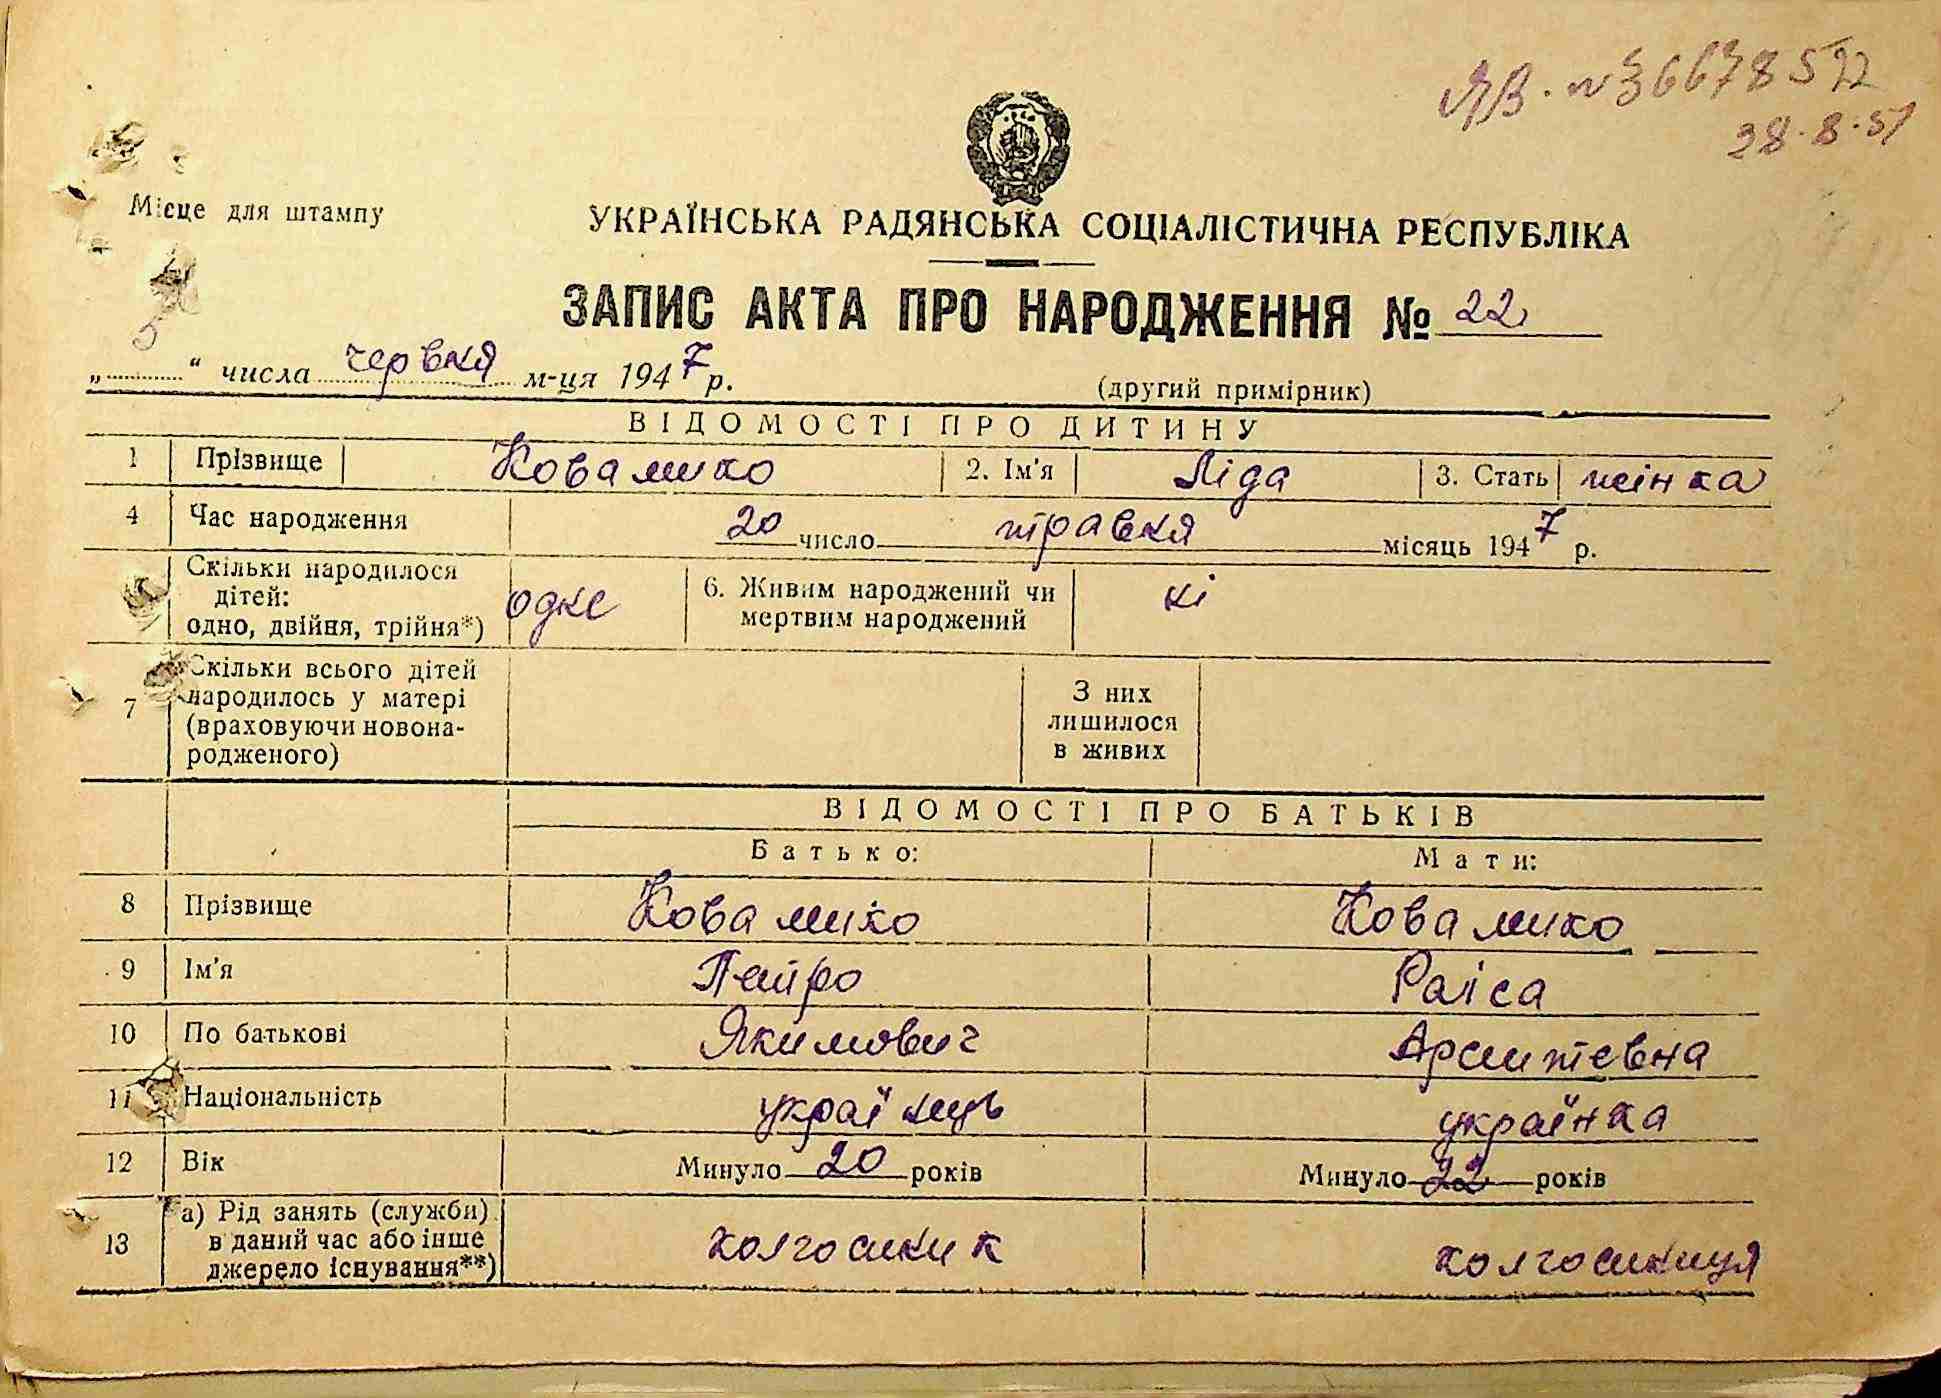 ЯВ. № 3667852
28.8.51
Місце для штампу
УКРАЇНСЬКА РАДЯНСЬКА СОЦІАЛІСТИЧНА РЕСПУБЛІКА
ЗАПИС АКТА ПРО НАРОДЖЕННЯ № 22
„ 5 “ числа червня м-ця 1947 р. (другий примірник)
ВІДОМОСТІ ПРО ДИТИНУ
1 Прізвище Ковалишко 2. Ім'я Ліда 3. Стать жінка
4 Час народження 20 число травня місяць 1947 р.
Скільки народилося дітей: одно, двійня, трійня*) одне 6. Живим народжений чи мертвим народжений ні
7 Скільки всього дітей народилось у матері (враховуючи новонародженого) З них лишилося в живих
ВІДОМОСТІ ПРО БАТЬКІВ
Батько: Мати:
8 Прізвище Ковалишко Ковалишко
9 Ім'я Петро Раїса
10 По батькові Якимович
11 Національність українць українка
12 Вік Минуло 20 років Минуло 22 років
13 а) Рід занять (служби) в даний час або інше джерело існування**) колгоспник колгоспниця